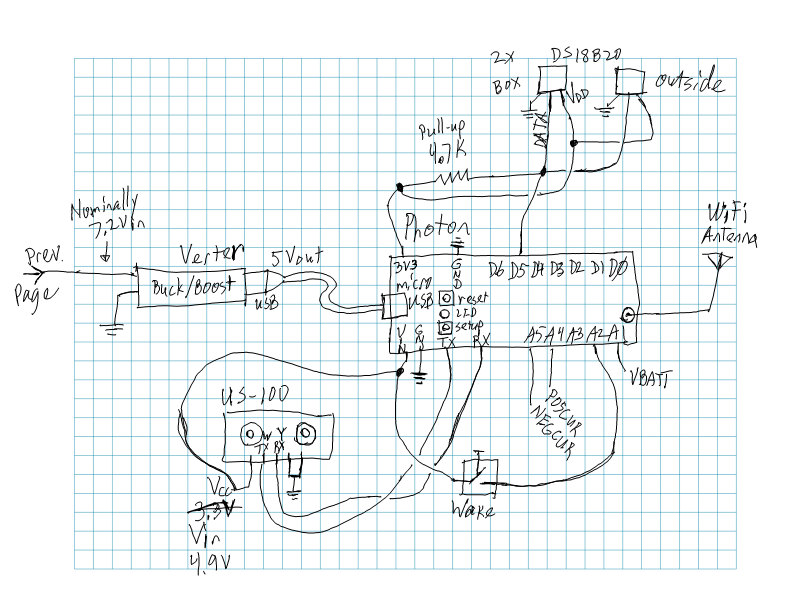 2x DS18B20
BOX
VDD
outside
DATA
Pull-up
4.7K
Nominally
7.2Vin
Prev.
Page
Verter
Buck/Boost
5Vout
USB
Photon
WiFi
Antenna
3V3
GND
D6 D5 D4 D3 D2 D1 D0
micro
USB
reset
LED
setup
VIN
GND
TX
RX
A5 A4 A3 A2 A1
VBATT
POSCUR
NEGCUR
US-100
W Y
TX RX
Vcc
3.3V
Vin
4.9V
Wake